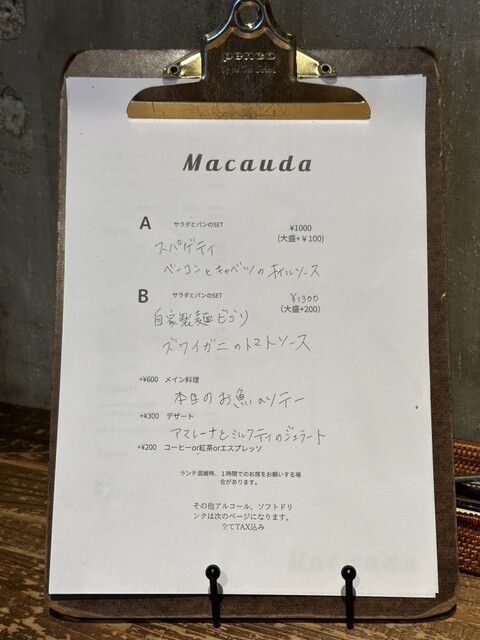 penco
Macauda
A サラダとパンのSET ¥1000
(大盛+¥100)
スパゲティ
ベーコンとキャベツのオイルソース
B サラダとパンのSET ¥1300
(大盛+200)
自家製麺ビゴリ
ズワイガニのトマトソース
+¥600 メイン料理
本日のお魚のソテー
+¥300 デザート
アマレーナとミルクティのジェラート
+¥200 コーヒーor紅茶orエスプレッソ
ランチ混雑時、1時間でのお席をお願いする場
合があります。
その他アルコール、ソフトドリ
ンクは次のページになります。
全てTAX込み